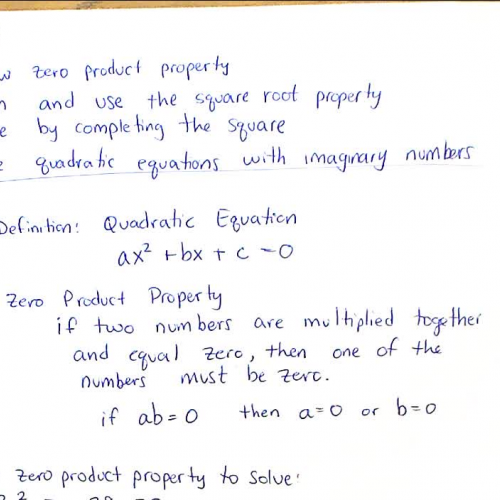 zero product property
and use the square root property
by completing the square
quadratic equations with imaginary numbers
Definition: Quadratic Equation
ax² + bx + c = 0
Zero Product Property
if two numbers are multiplied together
and equal zero, then one of the
numbers must be zero.
if ab = 0 then a=0 or b=0
zero product property to solve: